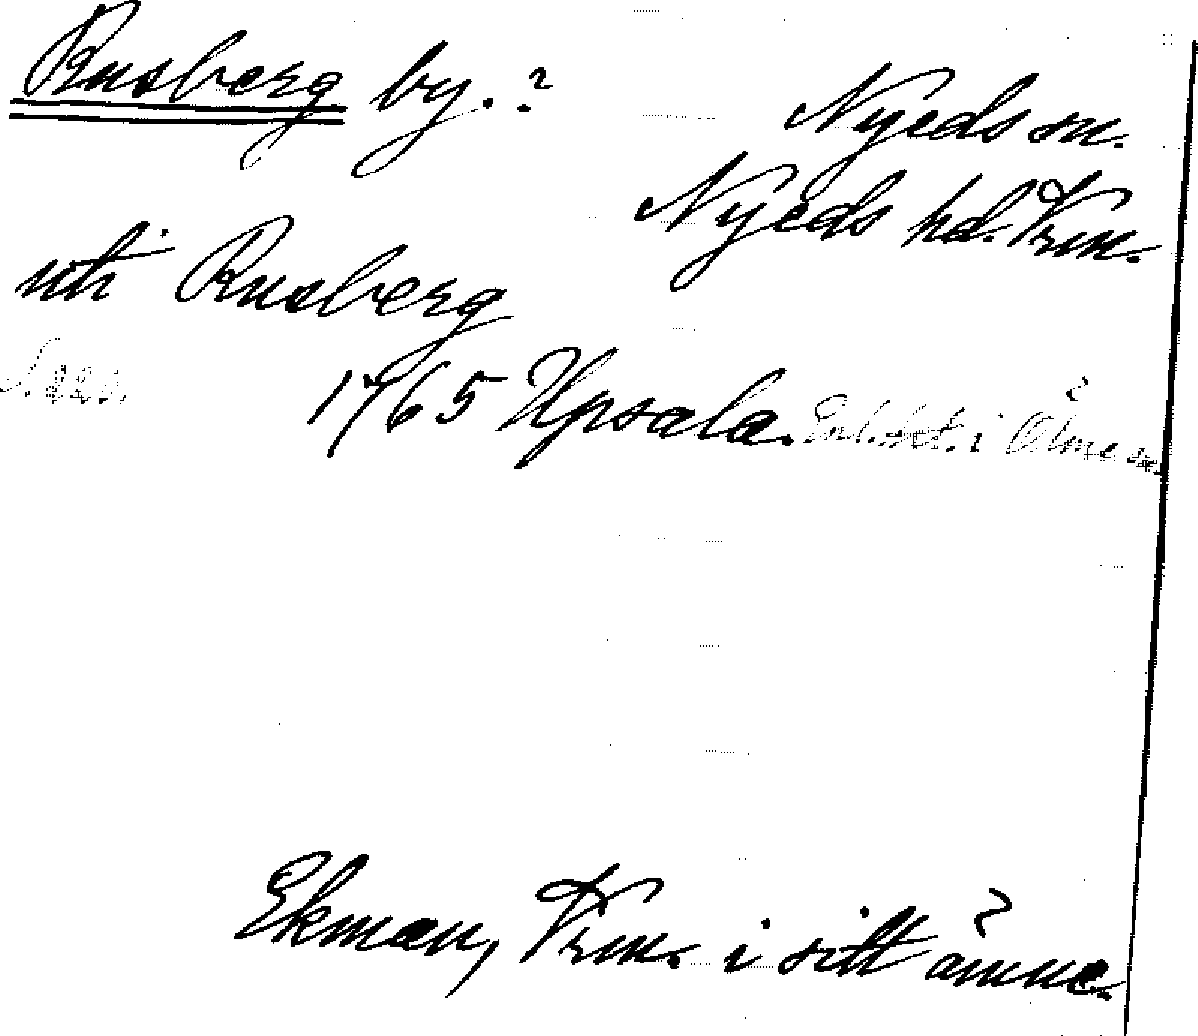 Rusberg by.?
Nyeds sn.
Nyeds hd. Vrm.
uti Rusberg
1765 Upsala. Enl. let. i Ölme sn.
Ekman, Vrm. i sitt ämne.